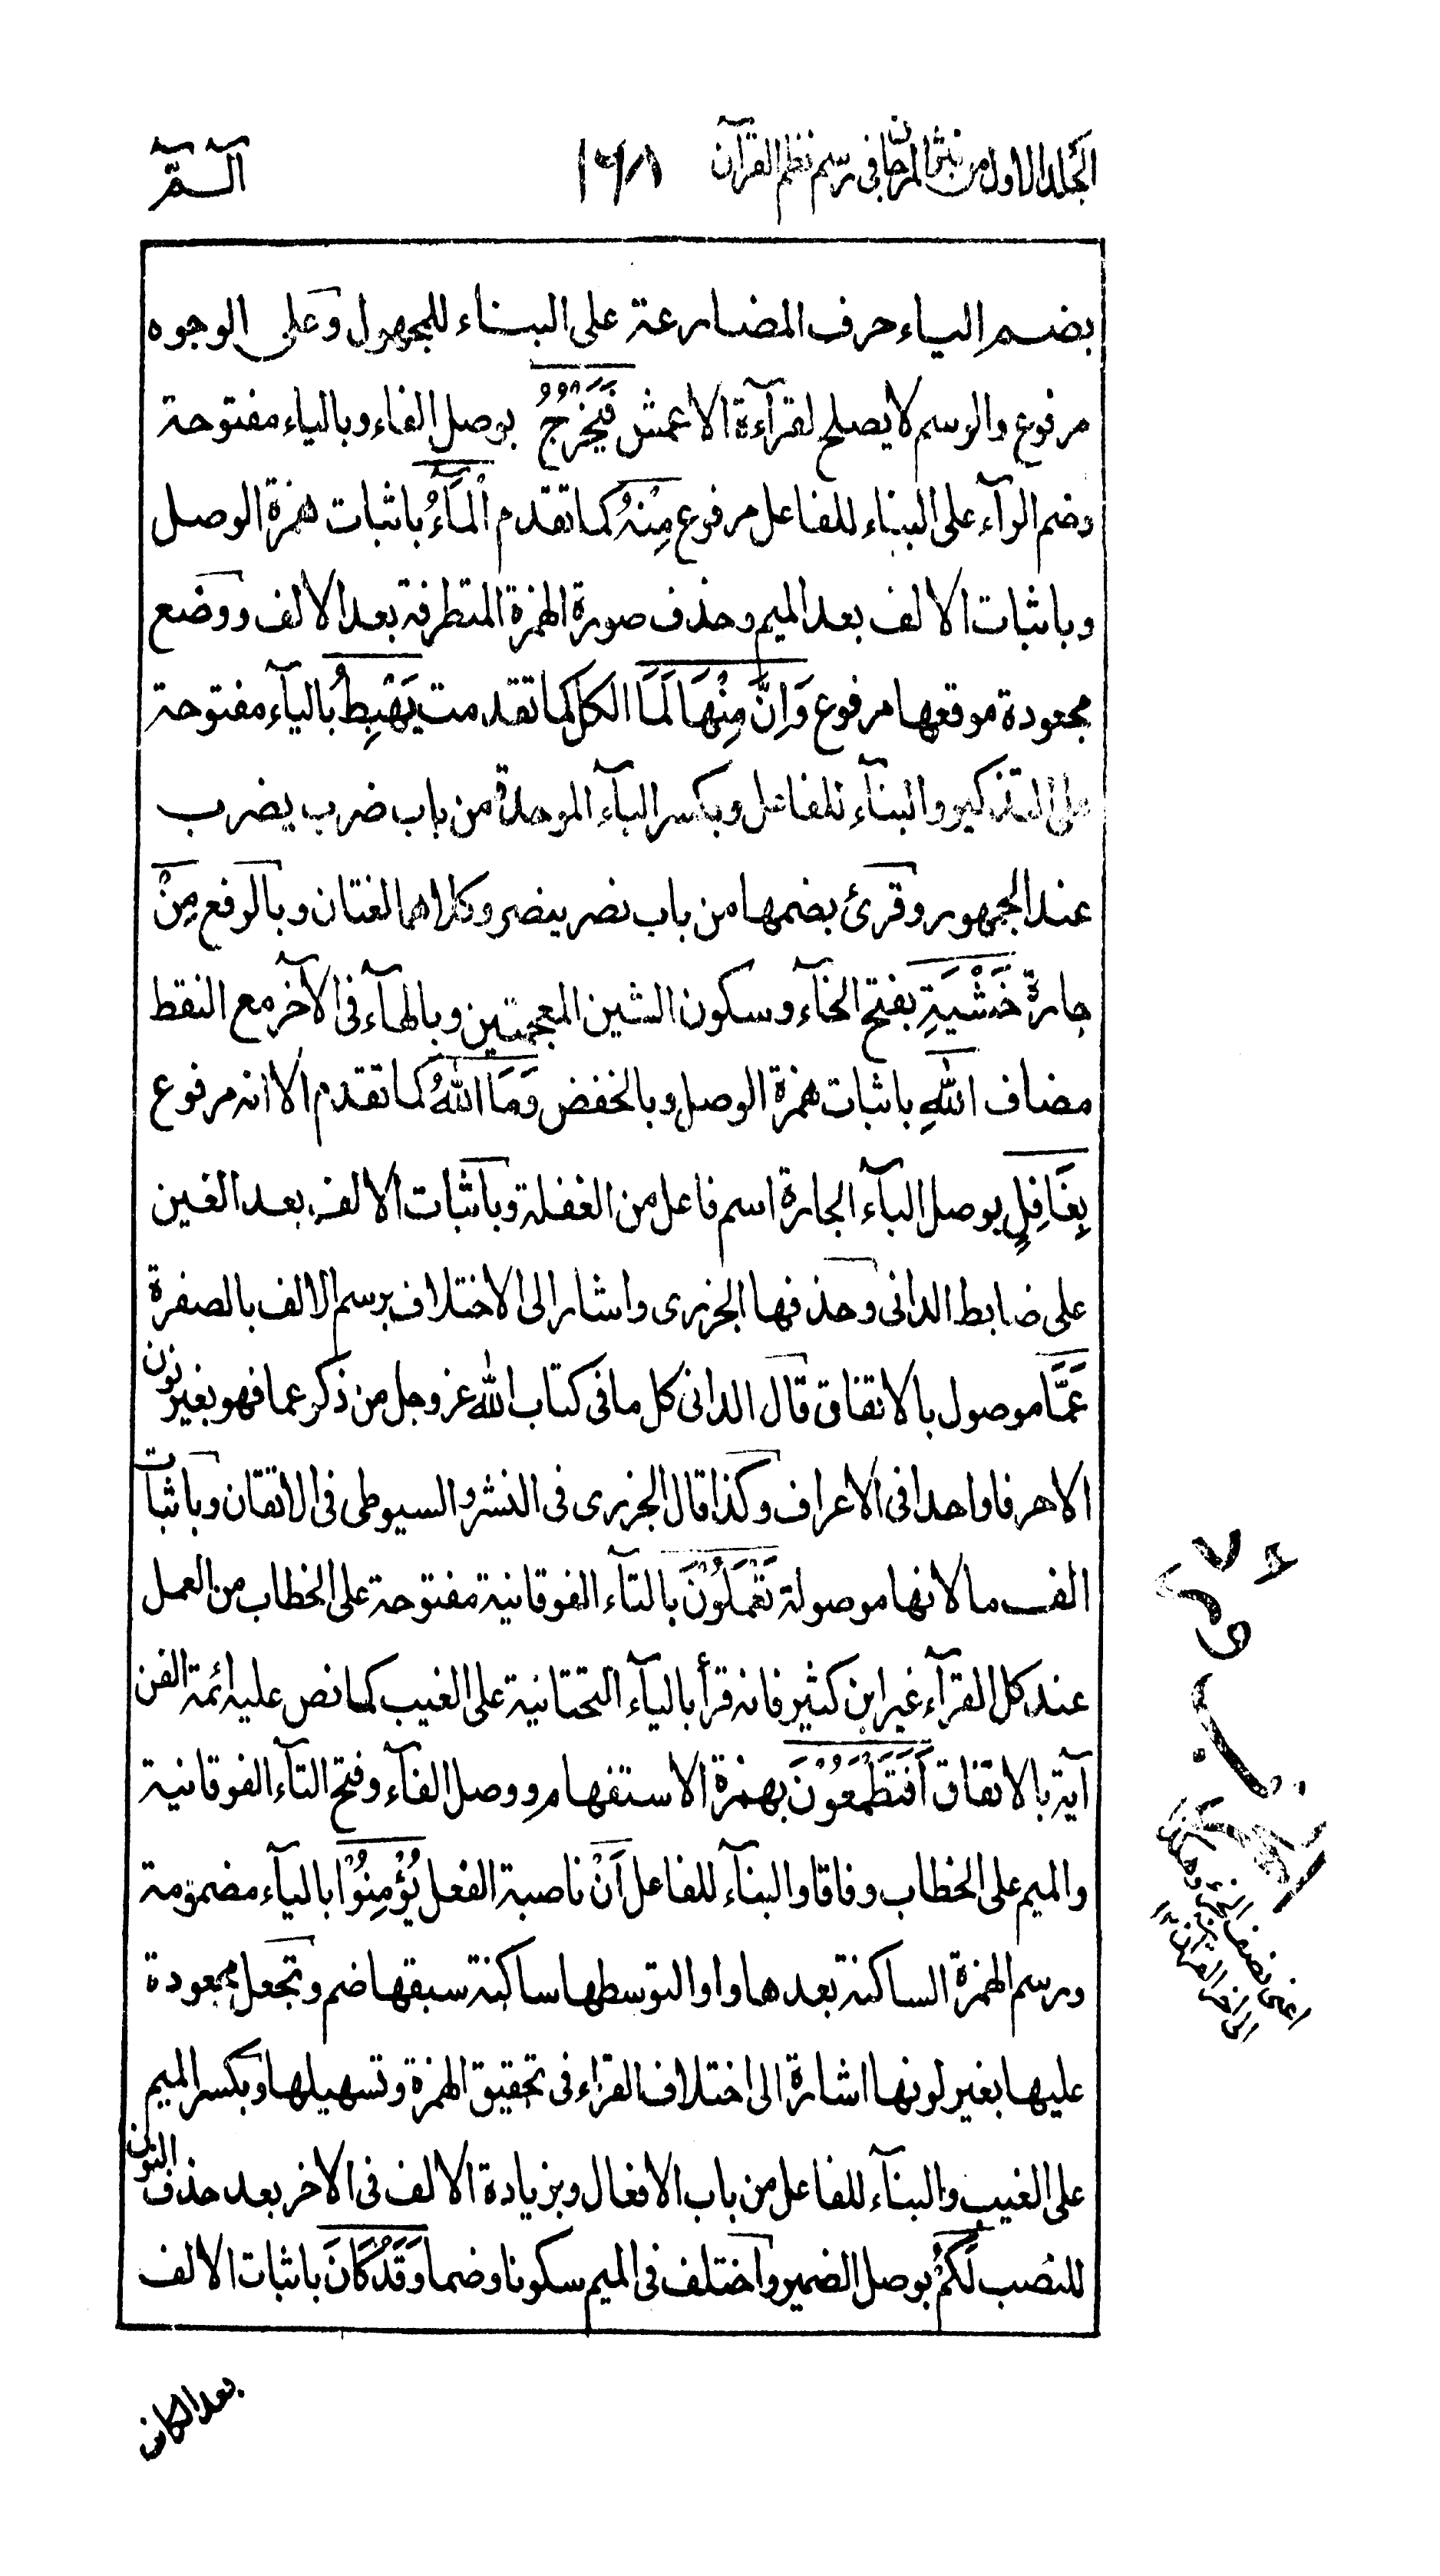 الجلد الاول من نثر المرجان فى رسم نظم القرآن
١٦٨
الٓمّٓ
بضم الياء حرف المضارعة على البناء للمجهول وعلى الوجوه
مرفوع والرسم لا يصلح لقرآءة الاعمش فَيَخْرُجُ بوصل الفاء وبالياء مفتوحة
وضم الرآء على البناء للفاعل مرفوع مِنْهُ كما تقدم الْمَآءُ باثبات همزة الوصل
وباثبات الالف بعد الميم وحذف صورة الهمزة المتطرفة بعد الالف ووضع
مجعودة موقعها مرفوع وَاِنَّ مِنْهَا لَمَا الكل كما تقدمت يَهْبِطُ بالياء مفتوحة
على التذكير والبنآء للفاعل وبكسر البآء الموحدة من باب ضرب يضرب
عند الجمهور وقرئ بضمها من باب نصر ينصر وكلاهما لغتان وبالرفع مِنْ
جارة خَشْيَةِ بفتح الخآء وسكون الشين المعجمتين وبالهآء فى الآخر مع النقط
مضاف اللّٰهِ باثبات همزة الوصل وبالخفض وَمَا اللّٰهُ كما تقدم الا انه مرفوع
بِغَافِلٍ بوصل البآء الجارة اسم فاعل من الغفلة وباثبات الالف بعد الغين
على ضابط الدانى وحذفها الجزرى واشار الى الاختلاف برسم الالف بالصفرة
عَمَّا موصول بالاتفاق قال الدانى كل ما فى كتاب الله عز وجل من ذكر عما فهو بغير نون
الا هرفا واحدا فى الاعراف وكذا قال الجزرى فى النشر والسيوطى فى الاتقان وباثبات
الف ما لانها موصولة تَعْمَلُوْنَ بالتآء الفوقانية مفتوحة على الخطاب من العمل
عند كل القرآء غير ابن كثير فانه قرأ باليآء التحتانية على الغيب كما نص عليه ائمة الفن
آية بالاتفاق اَفَتَطْمَعُوْنَ بهمزة الاستفهام ووصل الفآء وفتح التآء الفوقانية
والميم على الخطاب وفاقا والبنآء للفاعل اَنْ ناصبة الفعل يُؤْمِنُوْا باليآء مضمومة
ورسم الهمزة الساكنة بعدها واوا لتوسطها ساكنة سبقها ضم وتجعل مجعودة
عليها بغير لونها اشارة الى اختلاف القراء فى تحقيق الهمزة وتسهيلها وبكسر الميم
على الغيب والبنآء للفاعل من باب الافعال وبزيادة الالف فى الاخر بعد حذف النون
للنصب لَكُمْ بوصل الضمير واختلف فى الميم سكونا وضما وَقَدْ كَانَ باثبات الالف
اعنى نصف الجزء وهكذا
الى اخر القرآن ١٢
بعد الكاف